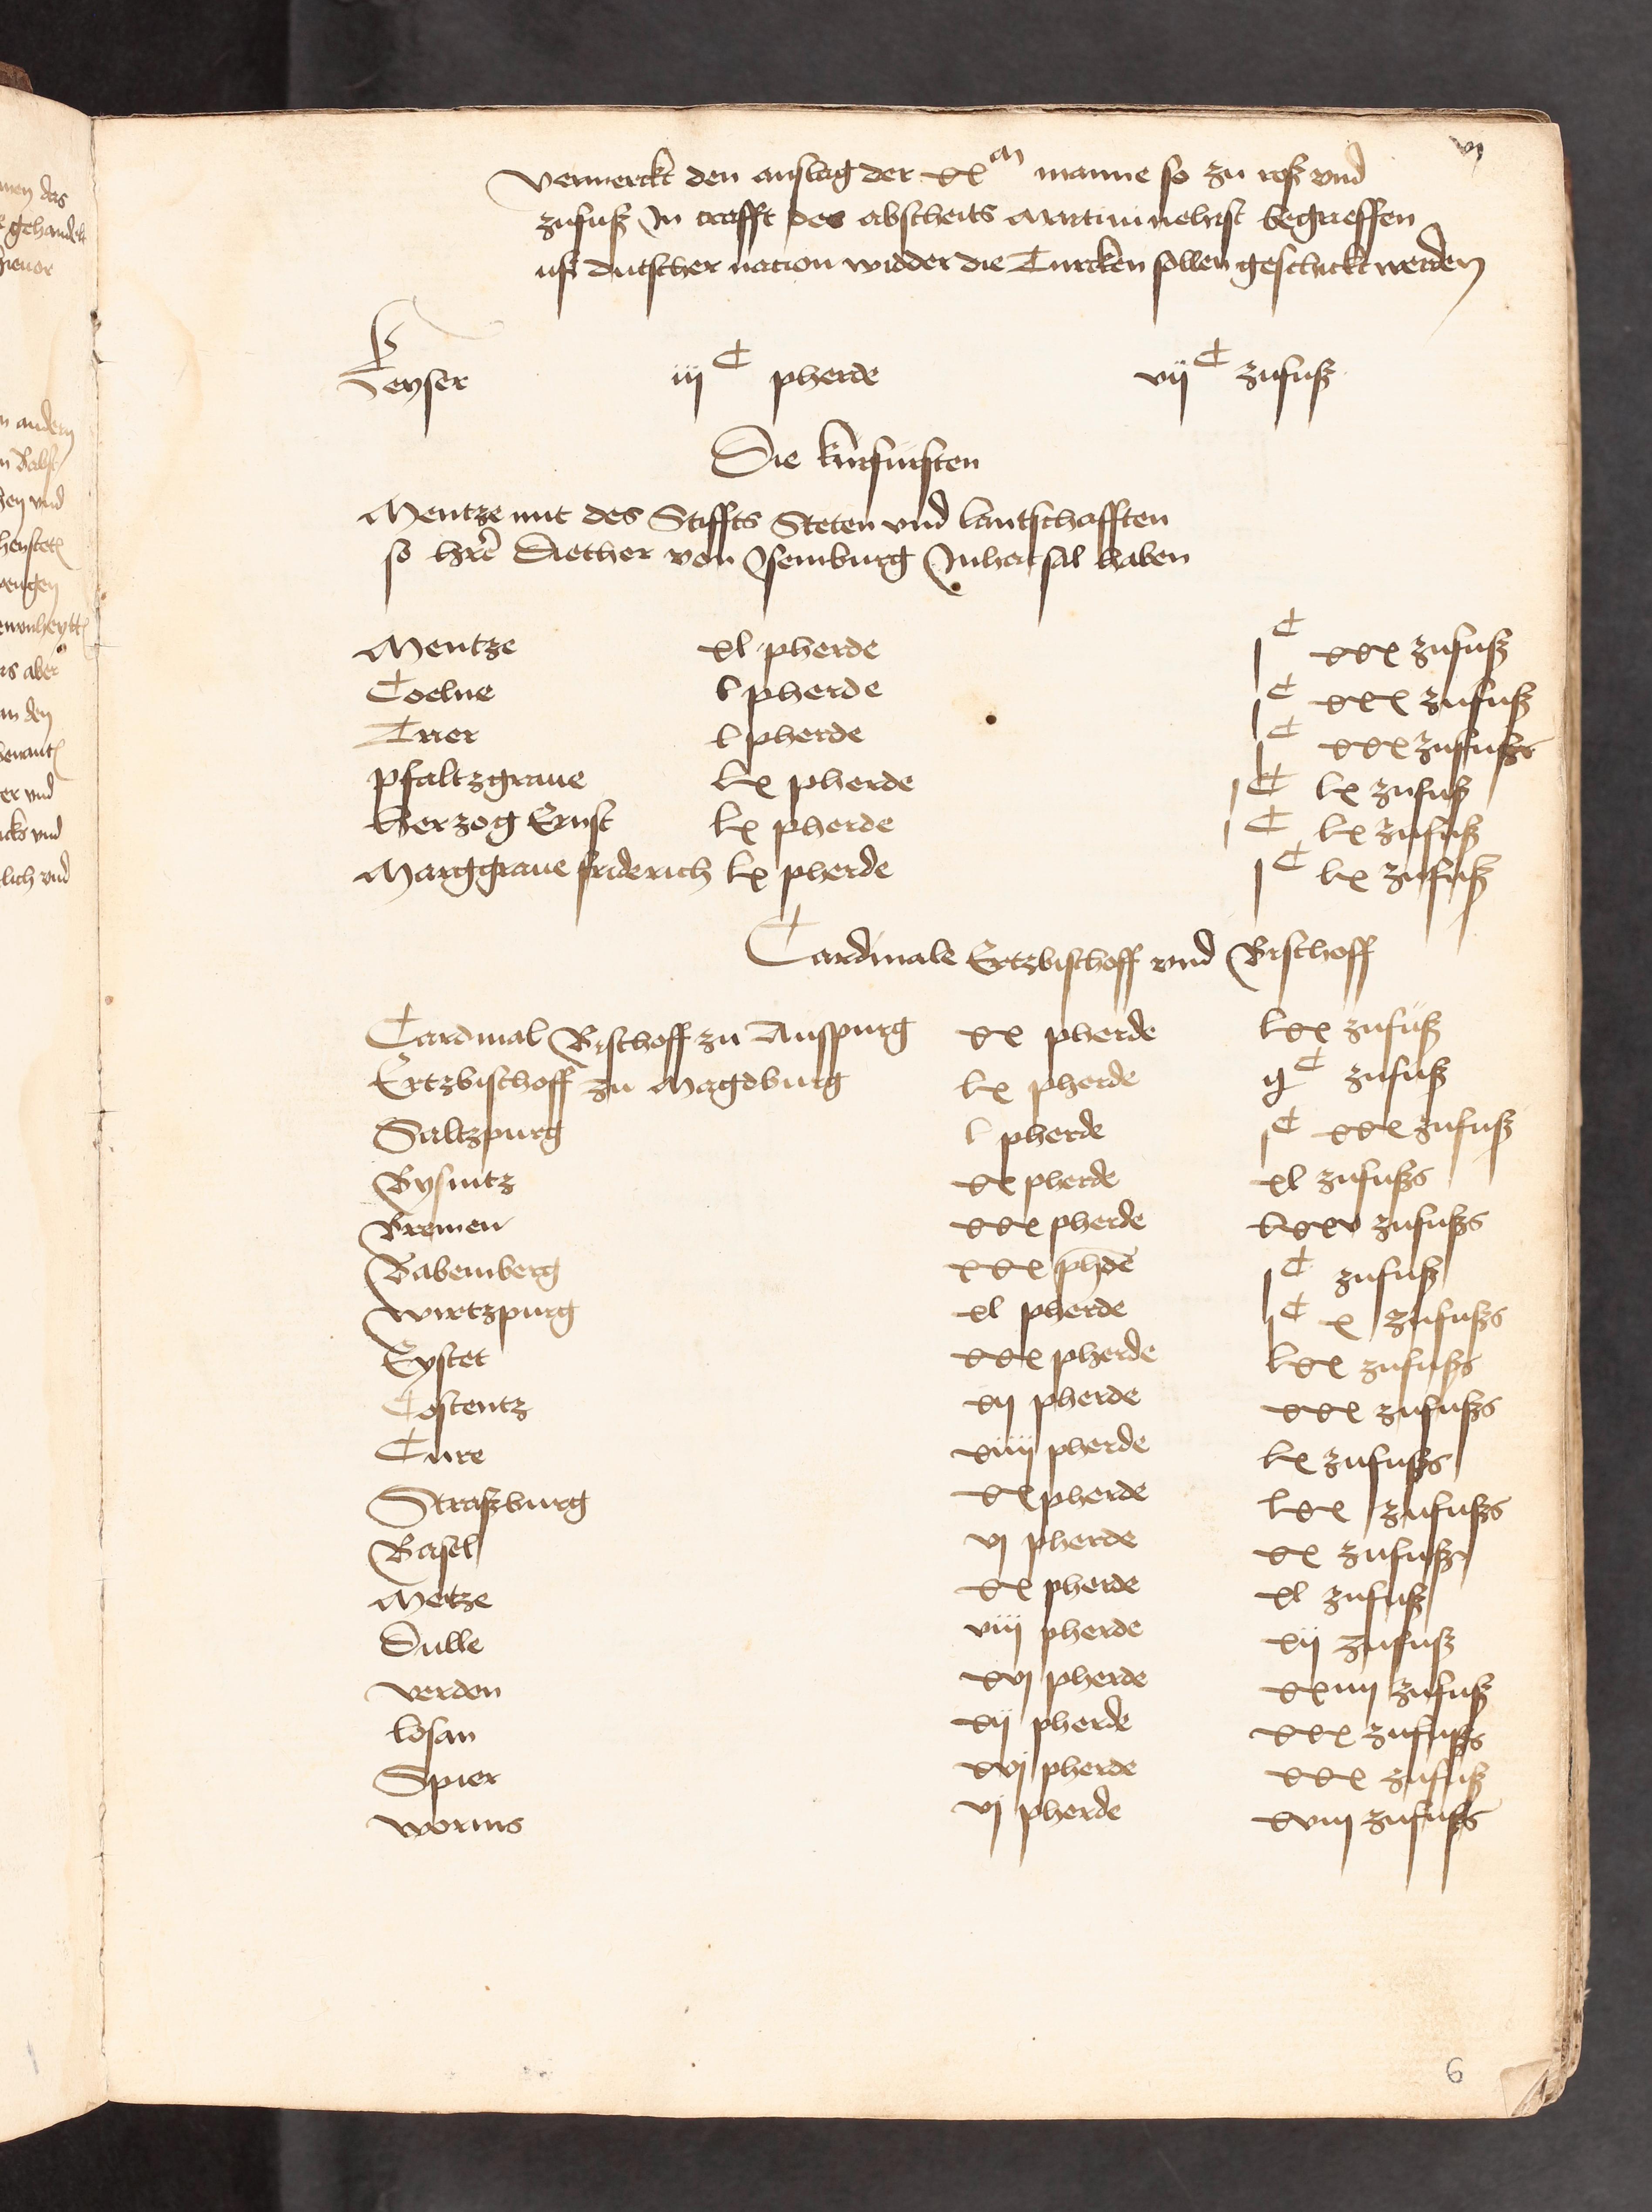 vj
Vermerckt den anslag der xx^m manne so zu rosz vnd
zufusz In crafft des abscheits Martini nehst begrieffen
usz dutscher nacion widder die Turcken sollen geschickt werden
Keyser iij^C pherde vij^C zufusz
Die kurfursten
Mentze mit des Stiffts Steten vnd lantschafften
so hrē Diether von Jsemburg Jnhat sal haben
Mentze xl pherde j^C xxx zufusz
Coelne l pherde j^C xxx zufusz
Trier l pherde j^C xxx zufuszs
Pfaltzgraue lx pherde j^C lx zufusz
Herzog Ernst lx pherde j^C lx zufusz
Marggraue friderich lx pherde j^C lx zufusz
Cardinale Ertzbischoff vnd Bischoff
Cardinal Bischoff zu Auspurg xx pherde lxx zufusz
Ertzbischoff zu Magdburg lx pherde ij^C zufusz
Saltzpurg l pherde j^C xxx zufusz
Bysintz xx pherde xl zufuszs
Bremen xxx pherde lxxv zufuszs
Babemberg xxx phdē j^C zufusz
Wirtzpurg xl pherde j^C x zufuszs
Eystet xxx pherde lxx zufuszs
Costentz xij pherde xxx zufuszs
Cure xiiij pherde lx zufuszs
Straszburg xx pherde lxx zufuszs
Basel vj pherde xx zufusz
Metze xx pherde xl zufusz
Dulle viij pherde xij zufusz
Verden xvj pherde xxiiij zufusz
losan xij pherde xxx zufuszs
Spier xvj pherde xxx zufusz
Worms vj pherde xviij zufuszs
6